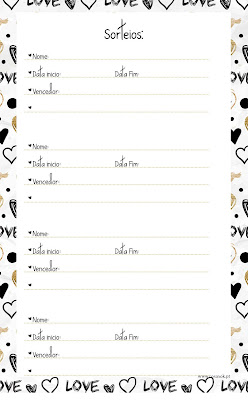 LOVE LOVE LOVE
Sorteios:
Nome:
Data inicio: Data Fim:
Vencedor:
Nome:
Data inicio: Data Fim:
Vencedor:
Nome:
Data inicio: Data Fim:
Vencedor:
Nome:
Data inicio: Data Fim:
Vencedor:
LOVE LOVE LOVE